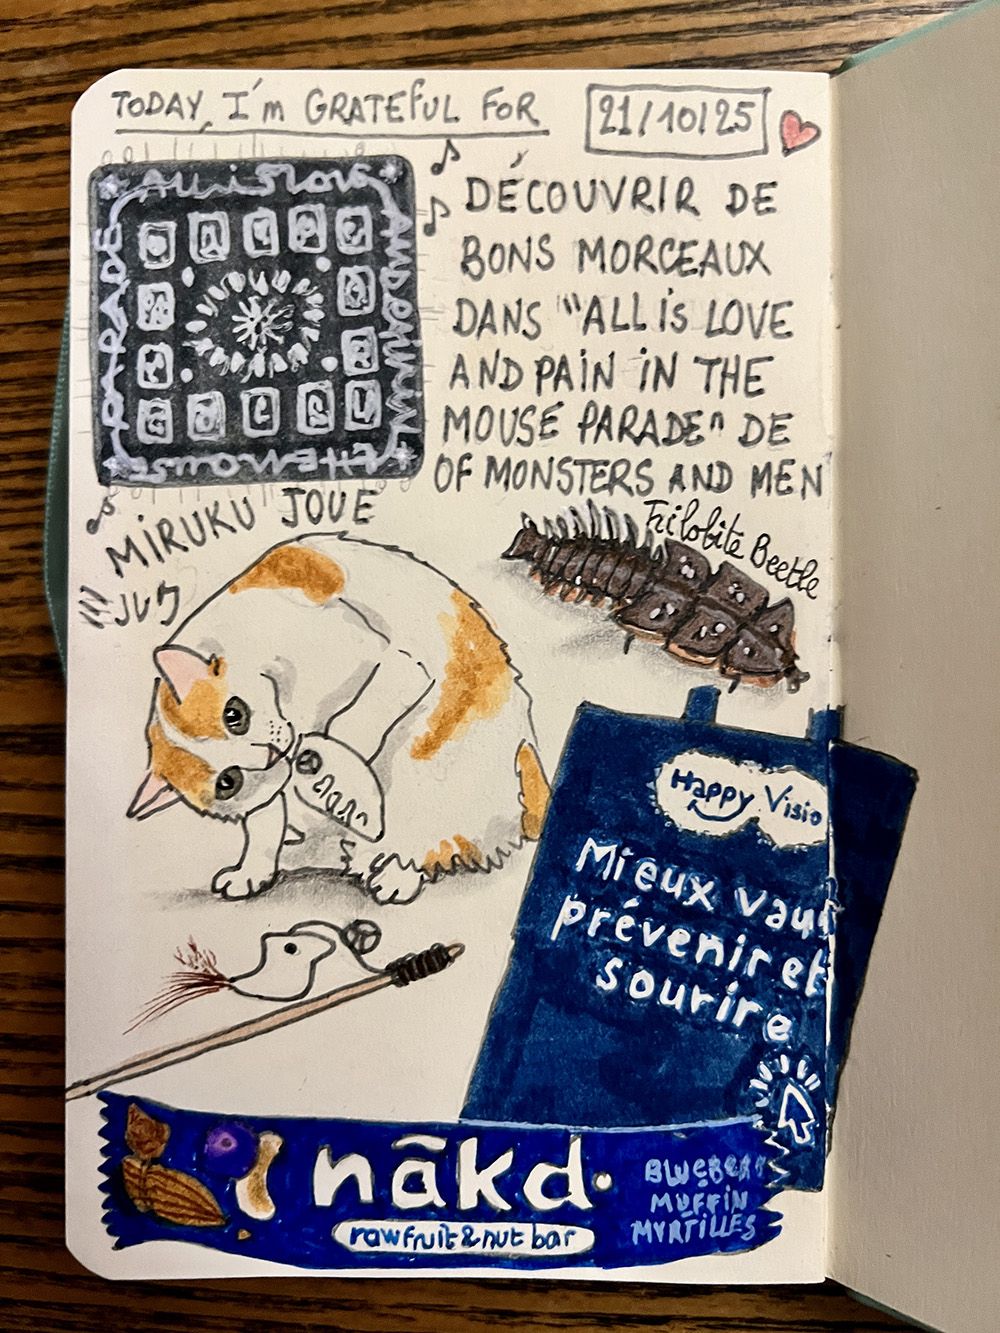 TODAY, I'm GRATEFUL FOR
21/10/25
ALL iS LOVE
AND PAIN IN
THE MOUSE
PARADE
DÉCOUVRIR DE
BONS MORCEAUX
DANS "ALL iS LOVE
AND PAiN iN THE
MOUSE PARADE" DE
OF MONSTERS AND MEN
MiRUKU JOUE
Trilobite Beetle
Happy Visio
Mieux vaut
prévenir et
sourire
nākd.
raw fruit & nut bar
BLUEBERRY
MUFFiN
MYRTiLLES